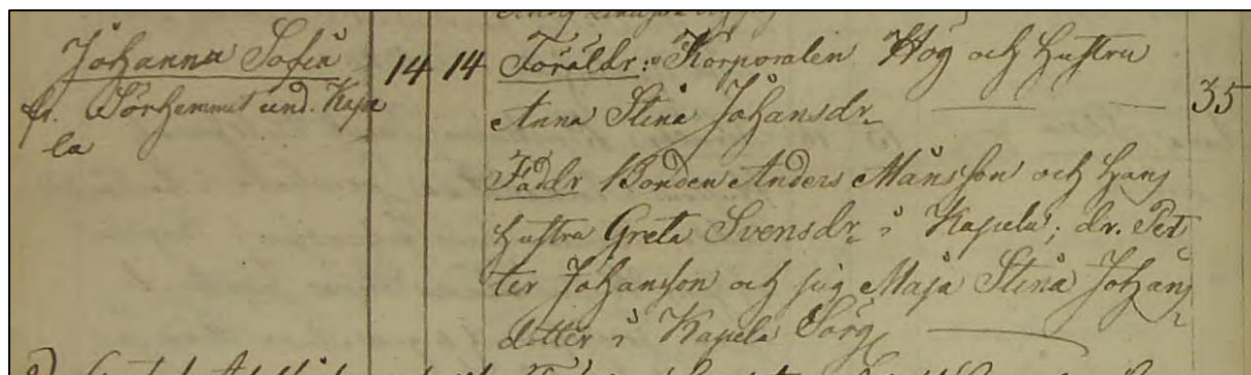 Johanna Sofia
fr. Sörhemmet und. Kape
la
14 14
Föräldr: Korporalen Hög och hustru
Anna Stina Johansdr
35
Faddr Bonden Anders Månsson och hans
hustru Greta Svensdr i Kapela; dr. Pet
ter Johanson och pig Maja Stina Johans
dotter i Kapela Sörg